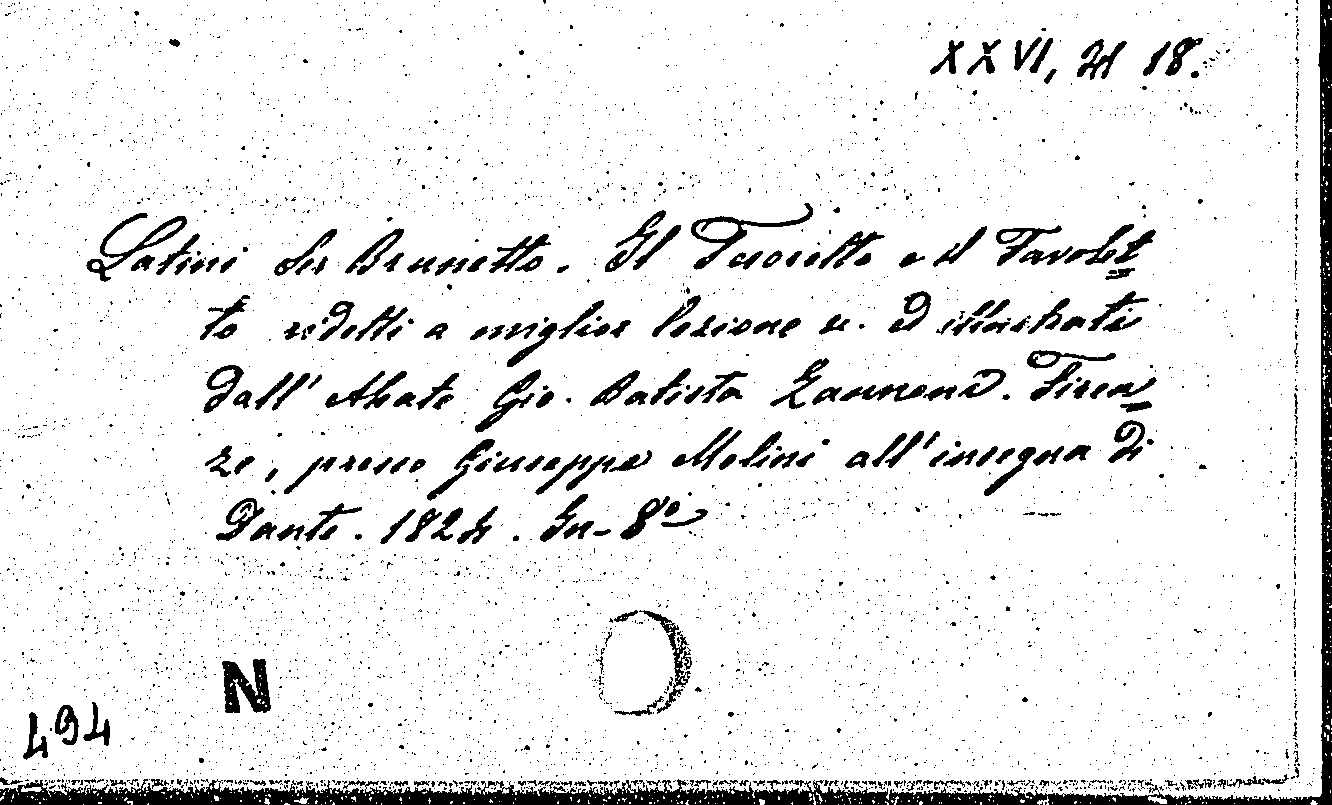 XXVI, 21 18.
Latini Ser Brunetto. Il Tesoretto e il Favolet=
to ridotti a miglior lezione e. ed illustrati
dall' Abate Gio. Batista Zannoni. Firen=
ze, presso Giuseppe Molini all' insegna di
Dante. 1824. In-8º
N
494